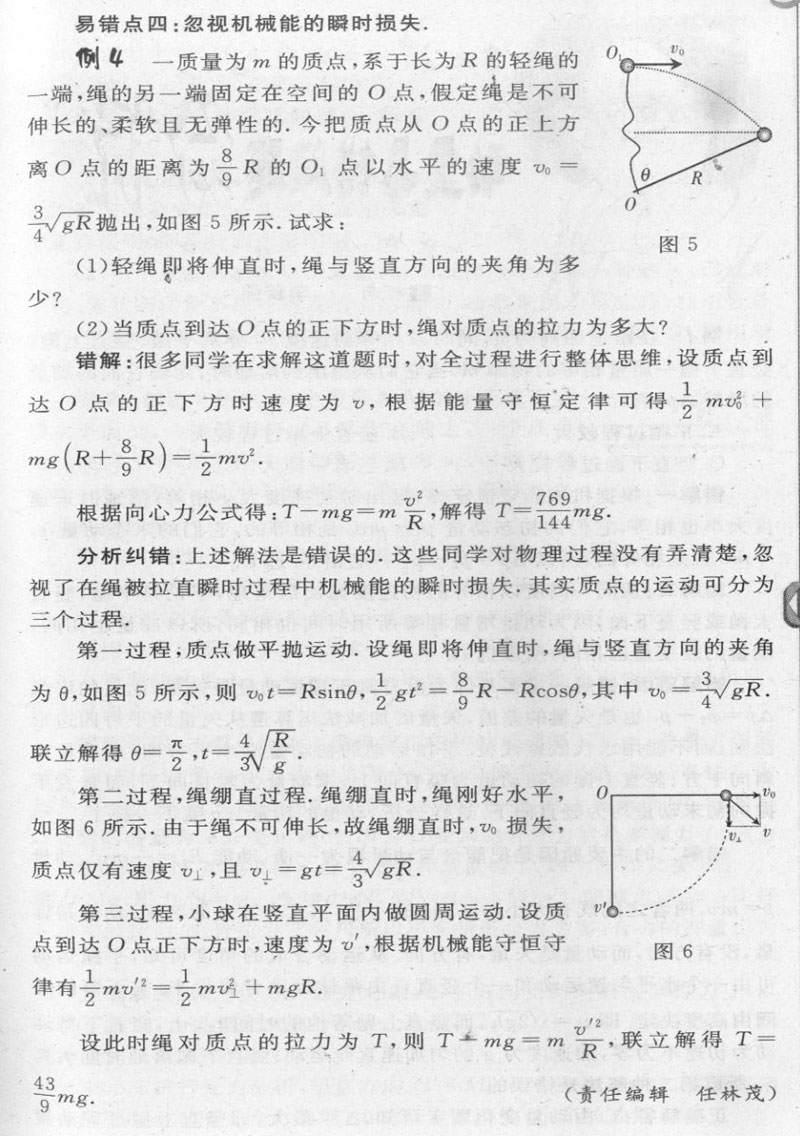 易错点四:忽视机械能的瞬时损失.
例4 一质量为 m 的质点,系于长为 R 的轻绳的
一端,绳的另一端固定在空间的 O 点,假定绳是不可
伸长的、柔软且无弹性的.今把质点从 O 点的正上方
离 O 点的距离为 8/9 R 的 O₁ 点以水平的速度 v₀ =
3/4 √gR 抛出,如图 5 所示.试求:
(1)轻绳即将伸直时,绳与竖直方向的夹角为多
少?
(2)当质点到达 O 点的正下方时,绳对质点的拉力为多大?
O₁ v₀
θ R
O
图 5
错解:很多同学在求解这道题时,对全过程进行整体思维,设质点到
达 O 点的正下方时速度为 v,根据能量守恒定律可得 1/2 mv₀² +
mg(R+8/9 R)=1/2 mv².
根据向心力公式得:T-mg=m v²/R,解得 T=769/144 mg.
分析纠错:上述解法是错误的.这些同学对物理过程没有弄清楚,忽
视了在绳被拉直瞬时过程中机械能的瞬时损失.其实质点的运动可分为
三个过程.
第一过程,质点做平抛运动.设绳即将伸直时,绳与竖直方向的夹角
为 θ,如图 5 所示,则 v₀t=Rsinθ,1/2 gt²=8/9 R-Rcosθ,其中 v₀=3/4 √gR.
联立解得 θ=π/2,t=4/3 √(R/g).
第二过程,绳绷直过程.绳绷直时,绳刚好水平,
如图 6 所示.由于绳不可伸长,故绳绷直时,v₀ 损失,
质点仅有速度 v⊥,且 v⊥=gt=4/3 √gR.
第三过程,小球在竖直平面内做圆周运动.设质
点到达 O 点正下方时,速度为 v′,根据机械能守恒守
律有 1/2 mv′²=1/2 mv⊥²+mgR.
O v₀
v⊥ v
v′
图 6
设此时绳对质点的拉力为 T,则 T-mg=m v′²/R,联立解得 T=
43/9 mg.
(责任编辑 任林茂)